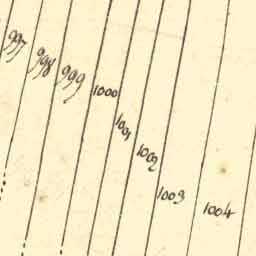 997
998
999
1000
1001
1002
1003
1004